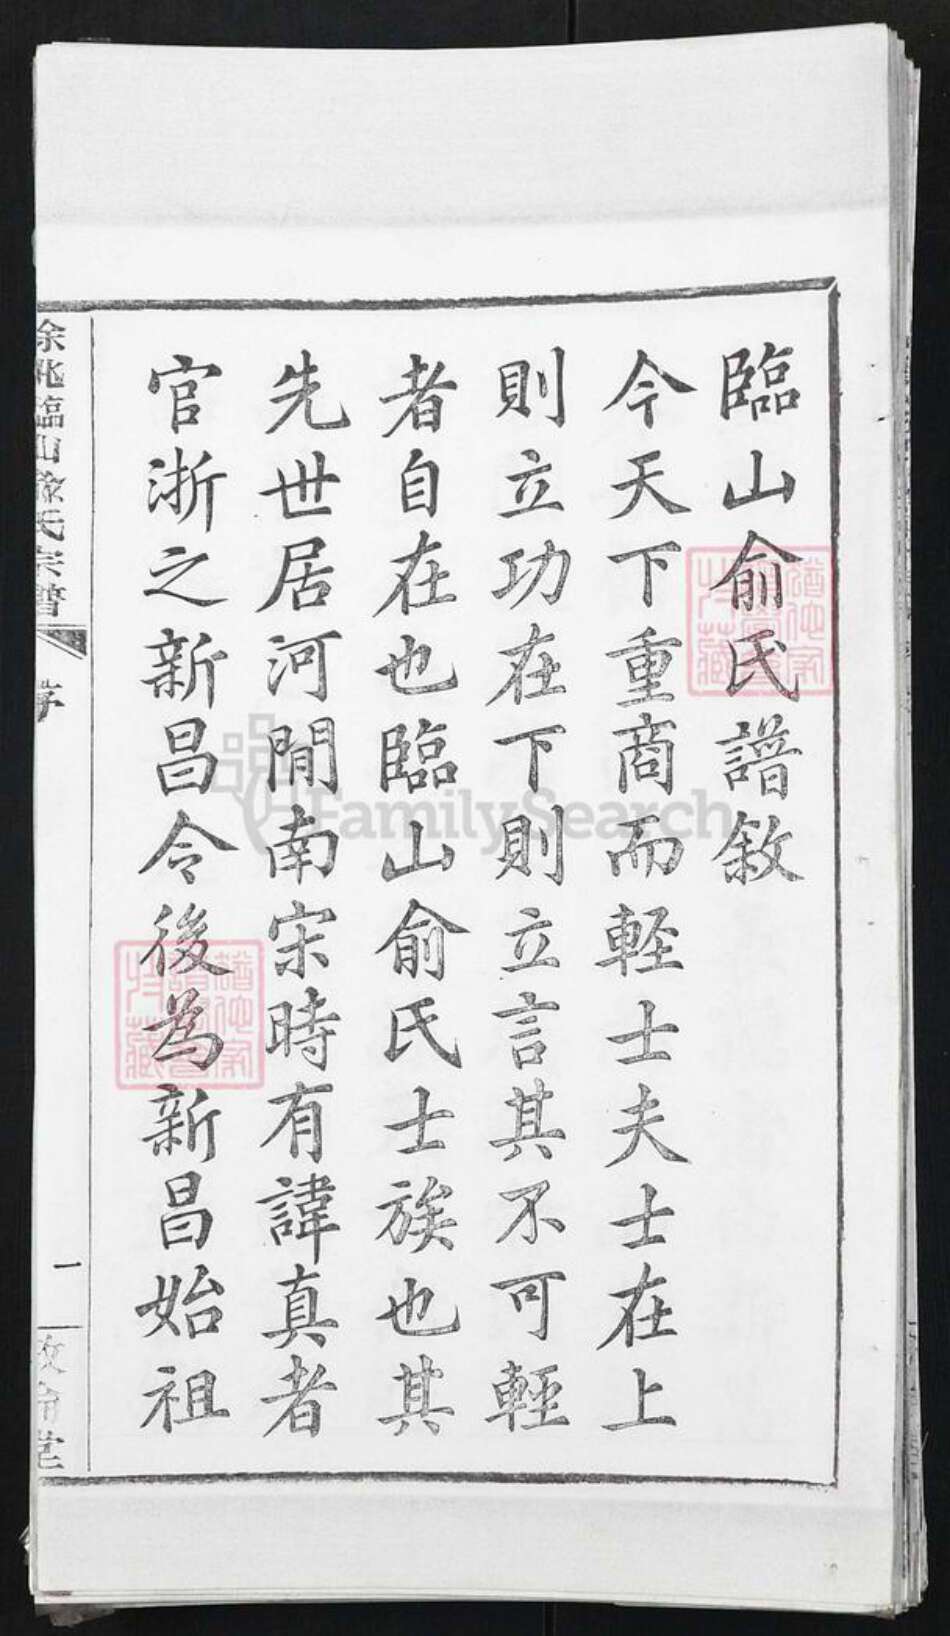 臨山俞氏譜敘
今天下重商而輕士夫士在上
則立功在下則立言其不可輕
者自在也臨山俞氏士族也其
先世居河間南宋時有諱真者
官浙之新昌令後為新昌始祖
余姚臨山俞氏宗譜
序
一
敦倫堂
FamilySearch